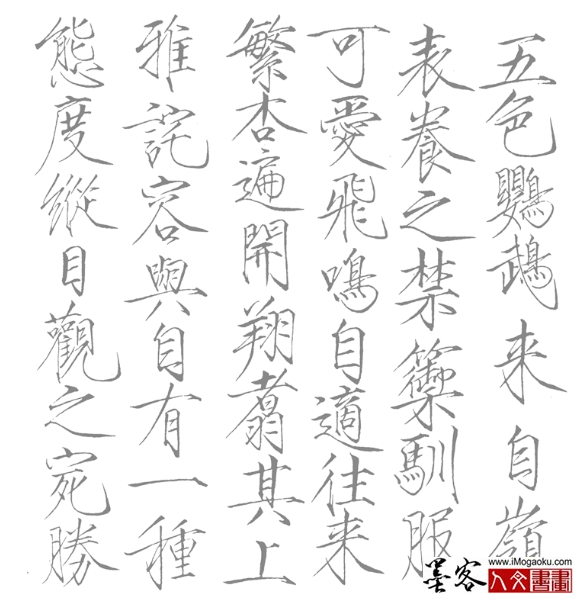 五色鸚鵡来自嶺
表養之禁籞馴服
可愛飛鳴自適往来
繁杏遍開翔翥其上
雅詫容與自有一種
態度縱目觀之宛勝
www.iMogaoku.com
墨客 人文書畫